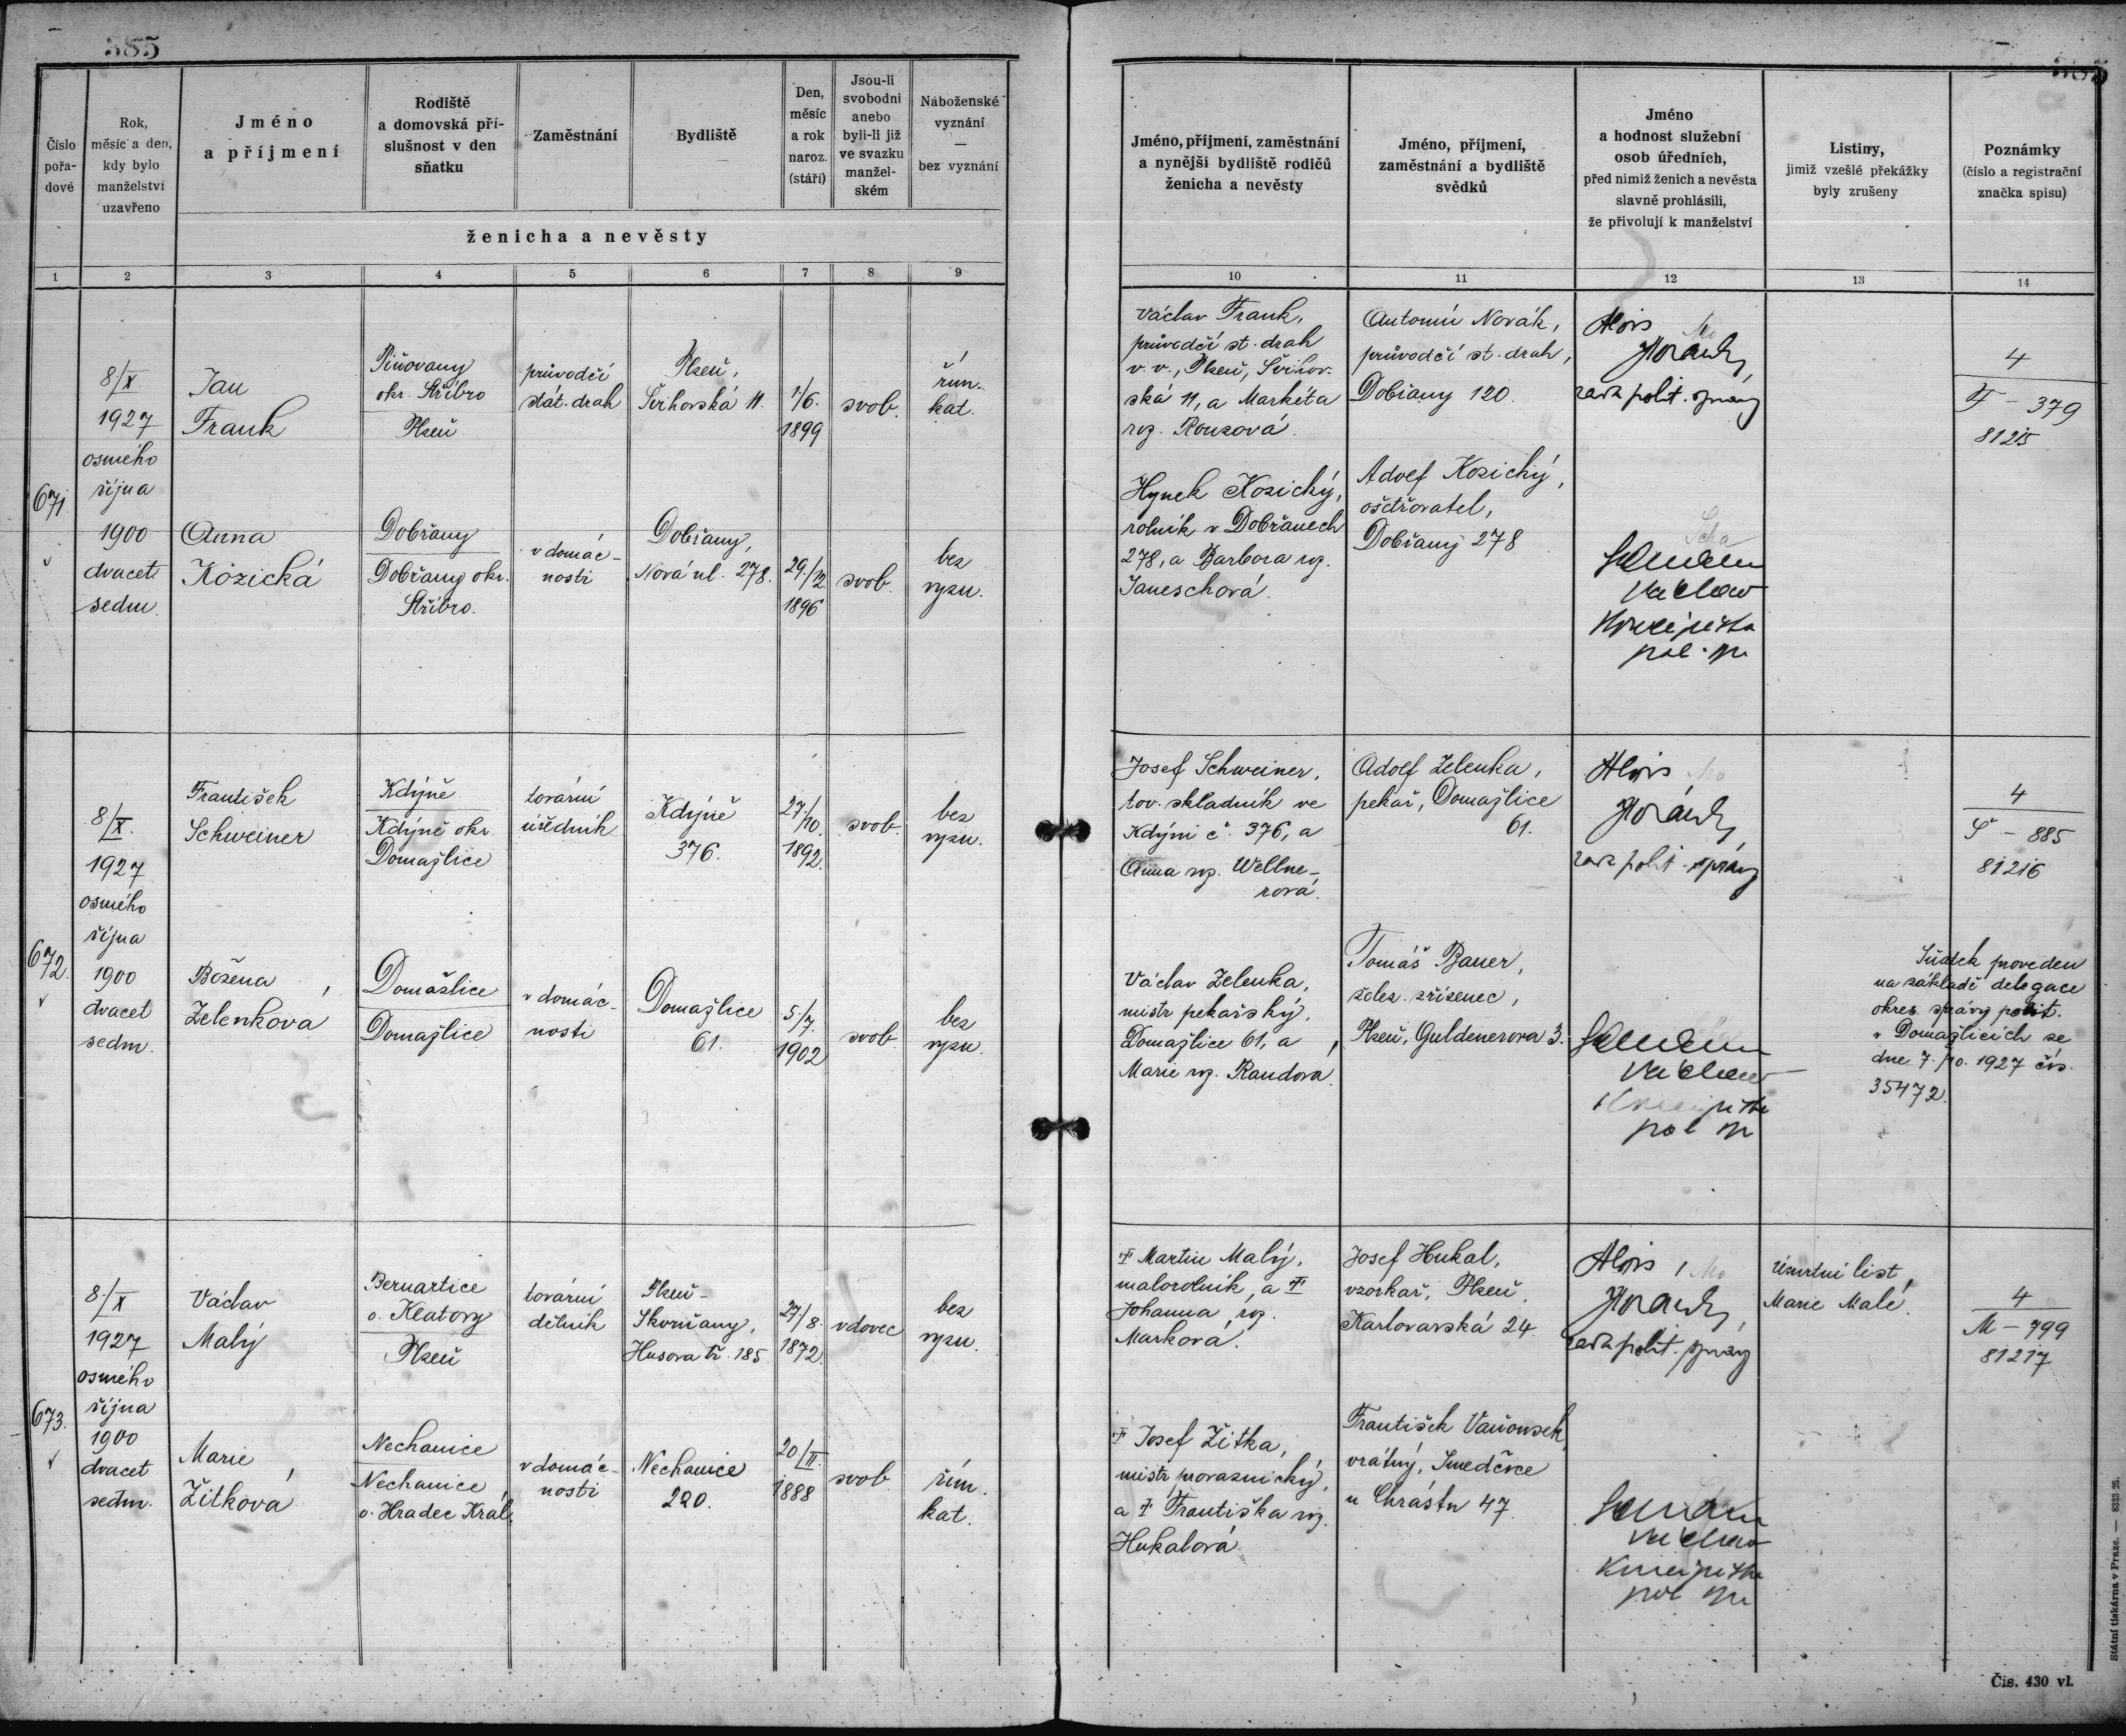 385
Číslo pořadové
Rok, měsíc a den, kdy bylo manželství uzavřeno
Jméno a příjmení
Rodiště a domovská příslušnost v den sňatku
Zaměstnání
Bydliště
Den, měsíc a rok naroz. (stáří)
Jsou-li svobodni anebo byli-li již ve svazku manželském
Náboženské vyznání — bez vyznání
ženicha a nevěsty
Jméno, příjmení, zaměstnání a nynější bydliště rodičů ženicha a nevěsty
Jméno, příjmení, zaměstnání a bydliště svědků
Jméno a hodnost služební osob úředních, před nimiž ženich a nevěsta slavně prohlásili, že přivolují k manželství
Listiny, jimiž vzešlé překážky byly zrušeny
Poznámky (číslo a registrační značka spisu)
1 2 3 4 5 6 7 8 9 10 11 12 13 14
671
8/X.
1927
osmého
října
1900
dvacet
sedm.
Jan
Frank
Piňovany
okr. Stříbro
Plzeň
průvodčí
stát. drah
Plzeň,
Švihovská 11.
1/6.
1899
svob.
řím.
kat.
Václav Frank,
průvodčí st. drah
v. v., Plzeň, Švihov-
ská 11, a Markéta
roz. Rouzová.
Antonín Novák,
průvodčí st. drah,
Dobřany 120.
Alois
rada polit. správy
4
F - 379
81215
Anna
Kozická
Dobřany
Dobřany okr.
Stříbro.
v domác-
nosti
Dobřany,
Nová ul. 278.
29./12
1896
svob.
bez
vyzn.
Hynek Kozický,
rolník v Dobřanech
278, a Barbora roz.
Janeschová.
Adolf Kozický,
ošetřovatel,
Dobřany 278
Václav
koncipista
pol. spr.
672.
8/X.
1927
osmého
října
1900
dvacet
sedm.
František
Schweiner
Kdýně
Kdýně okr.
Domažlice
tovární
úředník
Kdýně
376.
27/10.
1892.
svob.
bez
vyzn.
Josef Schweiner,
tov. skladník ve
Kdýni č. 376, a
Anna roz. Wellne-
rová.
Adolf Zelenka,
pekař, Domažlice
61.
Alois
rada polit. správy
4
Š - 885
81216
Božena
Zelenkova
Domažlice
Domažlice
v domác-
nosti
Domažlice
61.
5/7.
1902
svob.
bez
vyzn.
Václav Zelenka,
mistr pekařský,
Domažlice 61, a
Marie roz. Randova.
Tomáš Bauer,
želez. zřízenec,
Plzeň, Guldenerova 3.
Václav
koncipista
pol. spr.
Sňatek proveden
na základě delegace
okres. správy polit.
v Domažlicích ze
dne 7./10. 1927 čís.
35472.
673.
8/X
1927
osmého
října
1900
dvacet
sedm.
Václav
Malý
Bernartice
o. Klatovy
Plzeň
tovární
dělník
Plzeň-
Skvrňany,
Husova tř. 185
27./8.
1872.
vdovec
bez
vyzn.
† Martin Malý,
malorolník, a †
Johanna, roz.
Marková.
Josef Hukal,
vzorkař, Plzeň,
Karlovarská 24.
Alois
rada polit. správy
úmrtní list
Marie Malé.
4
M - 799
81217
Marie
Žitková
Nechanice
Nechanice,
o. Hradec Král.
v domác-
nosti
Nechanice
220.
20/II.
1888
svob.
řím.
kat.
† Josef Žitka,
mistr provaznický,
a † Františka roz.
Hukalová
František Vaňousek,
vrátný, Smedčice
u Chrástu 47.
Václav
koncipista
pol. spr.
Státní tiskárna v Praze. — 8333 25.
Čís. 430 vl.